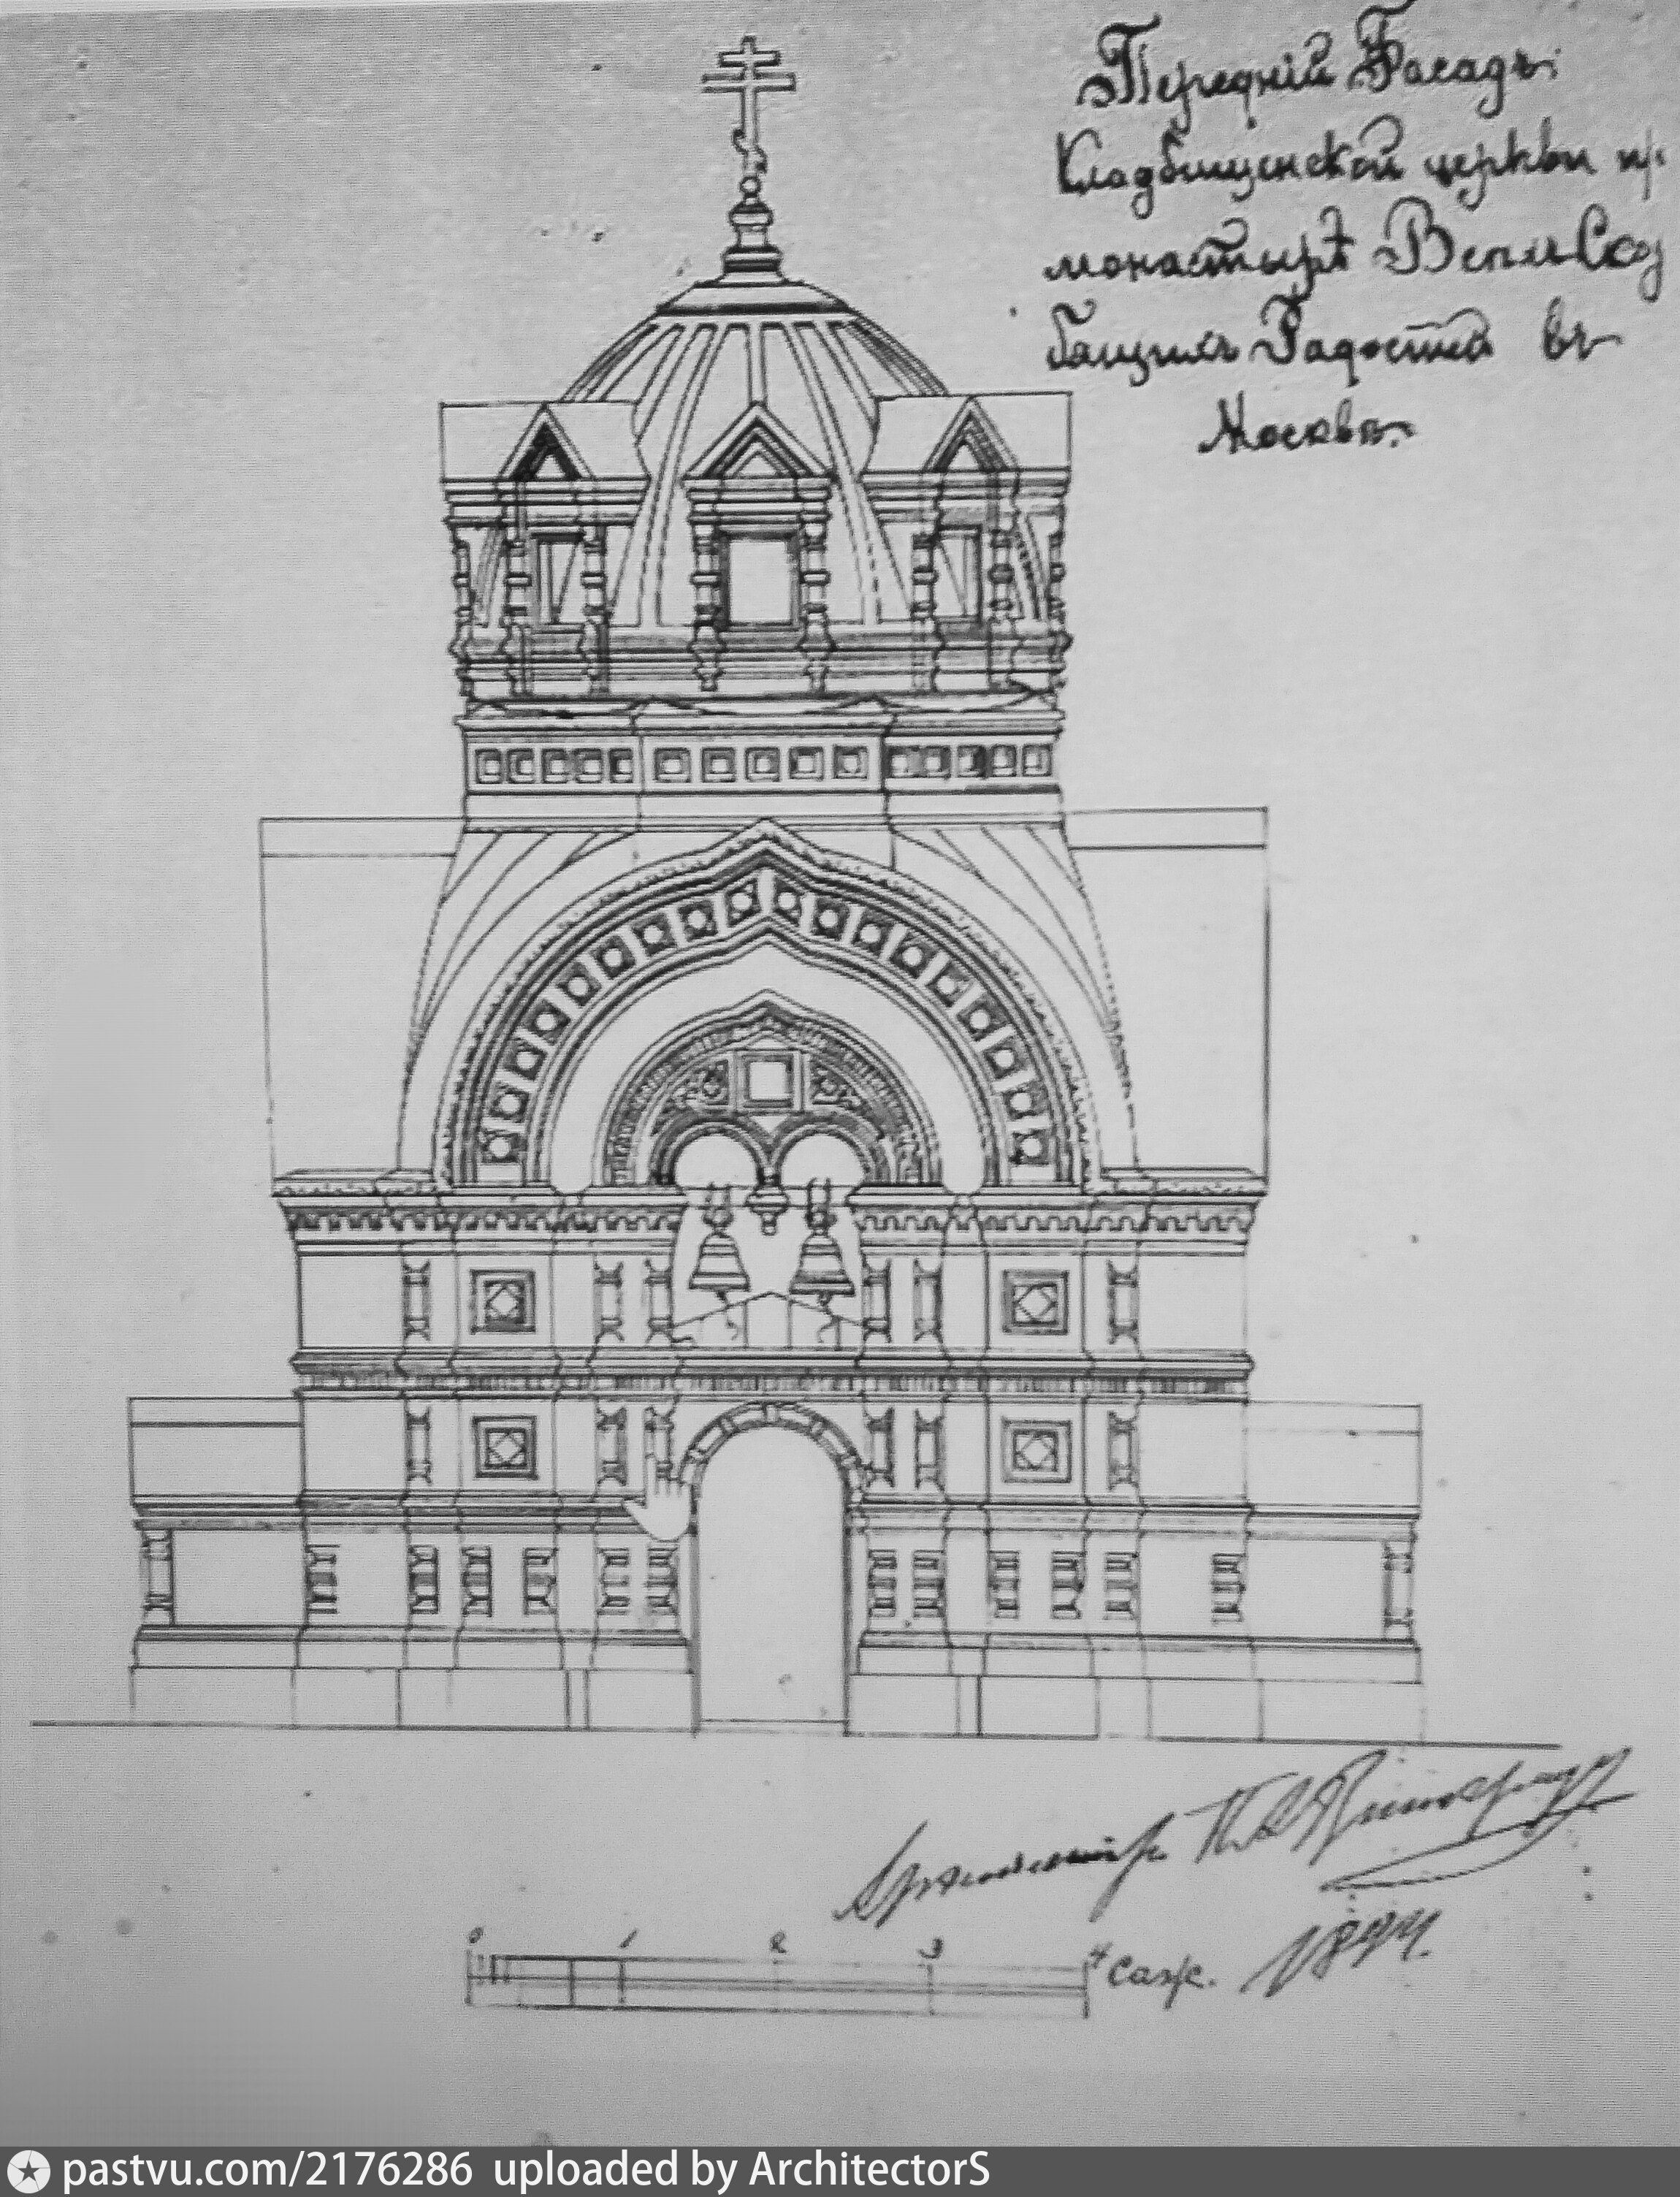 Переднiй Фасадъ
Кладбищенской церкви пр.
монастырѣ Всѣхъ Скор
бящихъ Радостей въ
Москвѣ.
Архитекторъ
0 1 2 3 4 саж. 1894.
pastvu.com/2176286 uploaded by ArchitectorS